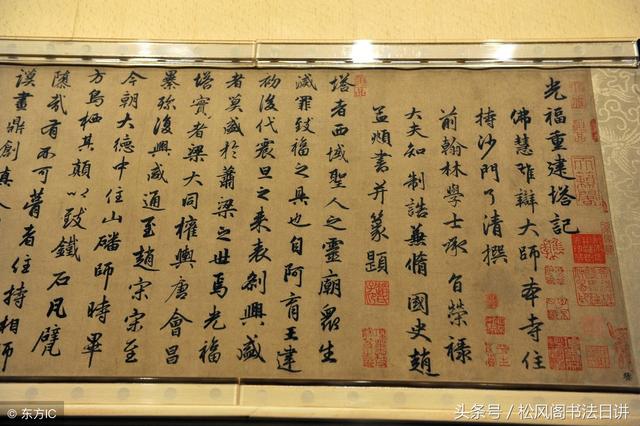 光福重建塔記
佛慧雄辯大師本寺住
持沙門了清撰
前翰林學士承旨榮祿
大夫知制誥兼脩國史趙
孟頫書并篆題
塔者西域聖人之靈廟眾生
滅罪致福之具也自阿育王建
初後代震旦之來表剎興盛
者莫盛於蕭梁之世焉光福
塔實者梁大同權輿唐會昌
興盛通至趙宋宋至
今朝大德中住山磻師時畢
方鳥栖其顛以致鐵石凡甓
隳哉有不可瞢者住持相師
謨畫鼎創真人
© 东方IC
头条号 / 松风阁书法日讲